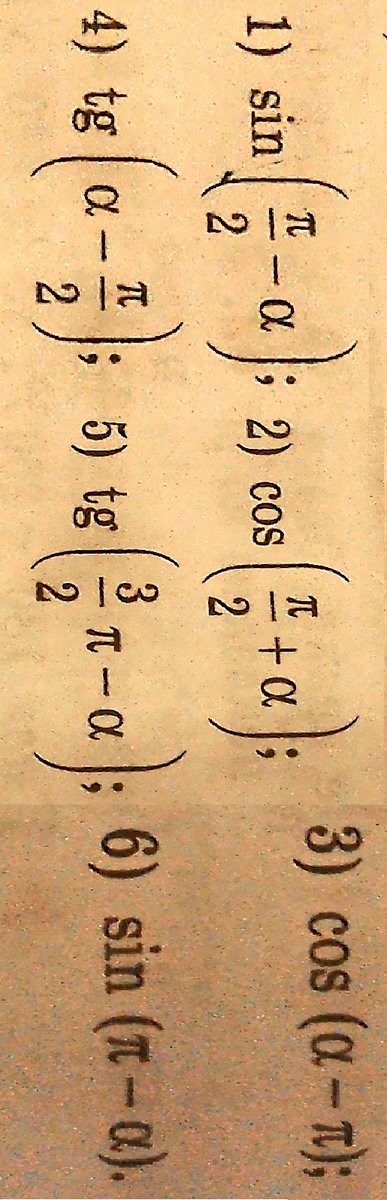 1) sin(π/2 − α); 2) cos(π/2 + α); 3) cos (α − π);
4) tg(α − π/2); 5) tg(3/2 π − α); 6) sin (π − α).